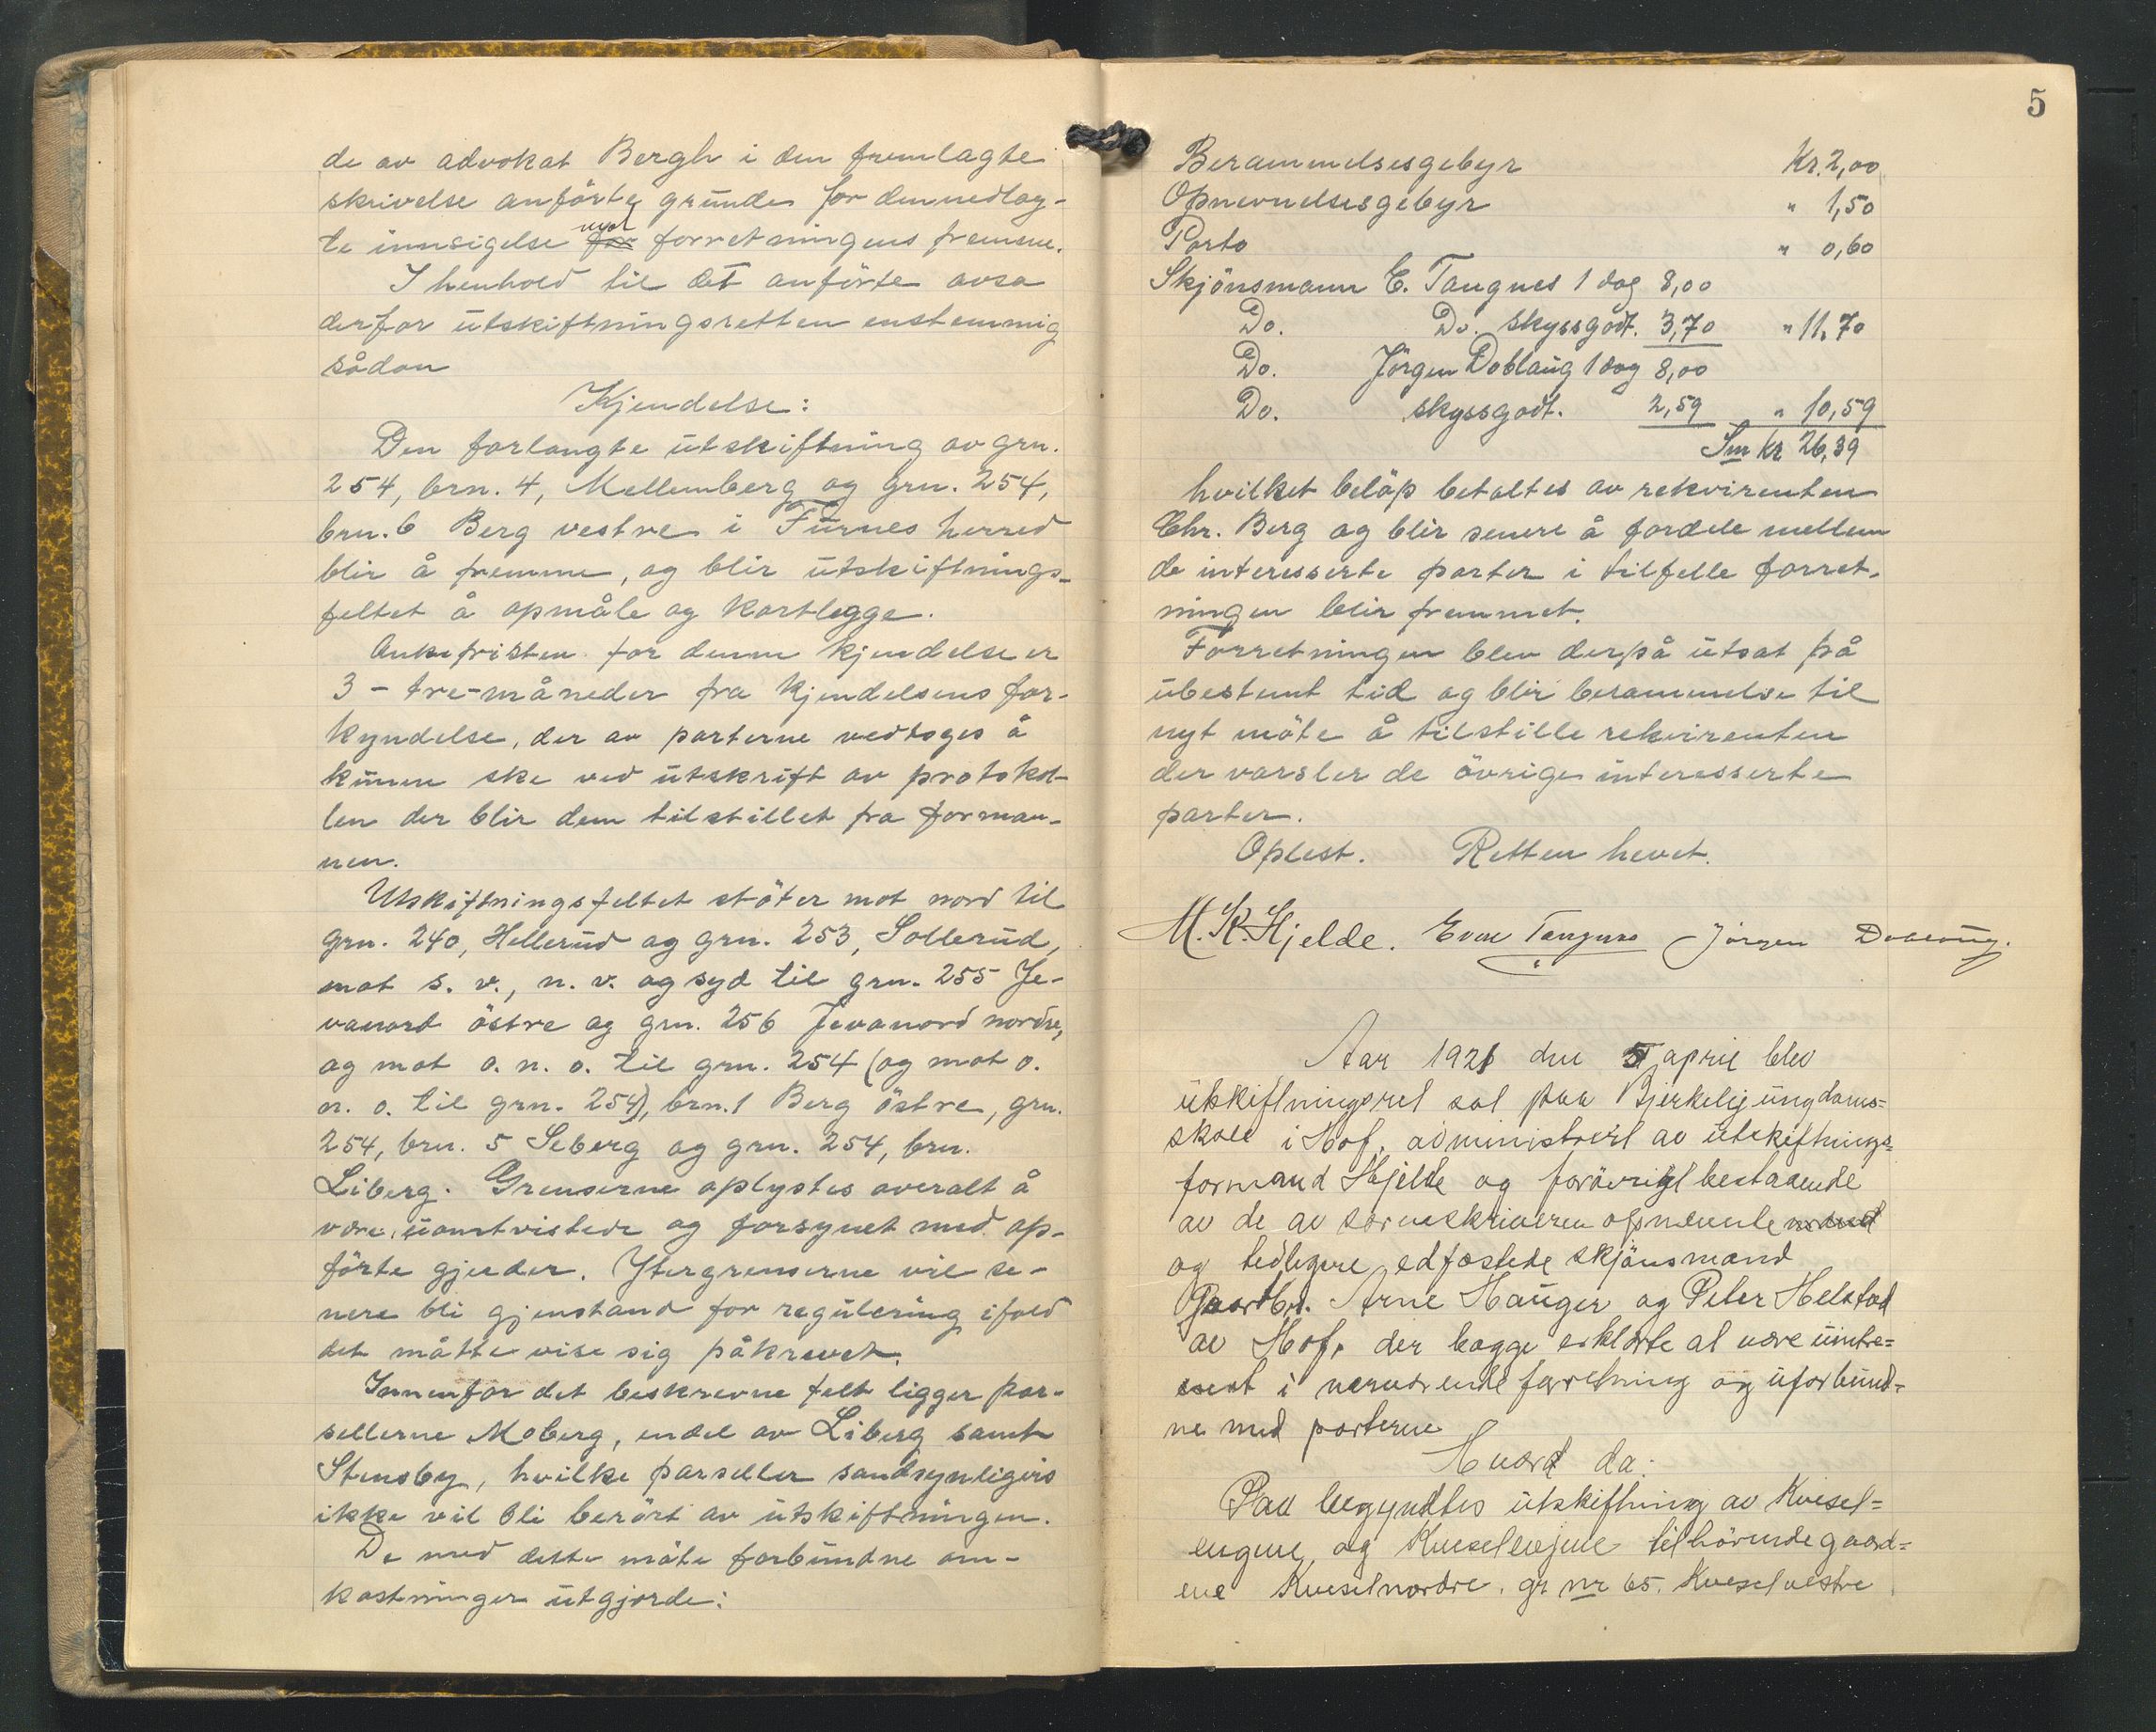 de av advokat Bergh i den fremlagte
skrivelse anförte grunde for den nedlag-
te innsigelse mot forretningens fremme.
I henhold til det anförte avsa
derfor utskiftningsretten enstemmig
sådan
Kjendelse:
Den forlangte utskiftning av grn.
254, brn. 4, Mellemberg og grn. 254,
brn. 6 Berg vestre i Furnes herred
blir å fremme, og blir utskiftnings-
feltet å opmåle og kartlegge.
Ankefristen for denne kjendelse er
3 - tre - måneder fra kjendelsens for-
kyndelse, der av parterne vedtoges å
kunne ske ved utskrift av protokol-
len der blir dem tilstillet fra forman-
nen.
Utskiftningsfeltet stöter mot nord til
grn. 240, Hellerud og grn. 253, Sollerud,
mot s. v., n. v. og syd til grn. 255 Je-
vanord östre og grn. 256 Jevanord nordre,
og mot o. n. o. til grn. 254 (og mot o.
n. o. til grn. 254), brn. 1 Berg östre, grn.
254, brn. 5 Seberg og grn. 254, brn.
Liberg. Grenserne oplystes overalt å
være uomtvistede og forsynet med op-
förte gjerder. Ytergrenserne vil se-
nere bli gjenstand for regulering ifald
det måtte vise sig påkrevet.
Innenfor det beskrevne felt ligger par-
sellerne Moberg, endel av Liberg samt
Stensby, hvilke parseller sandsynligvis
ikke vil bli berört av utskiftningen.
De med dette möte forbundne om-
kostninger utgjorde:
5
Berammelsesgebyr Kr. 2,00
Opnevnelsesgebyr " 1,50
Porto " 0,60
Skjönsmann E. Tangnes 1 dag 8,00
Do. Do. skyssgodt. 3,70 " 11,70
Do. Jörgen Doblaug 1 dag 8,00
Do. skyssgodt. 2,59 " 10,59
Sm kr 26,39
hvilket belöp betaltes av rekvirenten
Chr. Berg og blir senere å fordele mellem
de interesserte parter i tilfelle forret-
ningen blir fremmet.
Forretningen blev derpå utsat på
ubestemt tid og blir berammelse til
nyt möte å tilstille rekvirenten
der varsler de övrige interesserte
parter.
Oplest. Retten hevet.
M. K. Hjelde. Even Tangnes Jörgen Doblaug.
Aar 1921 den 5 april blev
utskiftningsret sat paa Bjerkelij ungdoms=
skole i Hof, administrert av utskiftnings=
formand Hjelde og forövrigt bestaaende
av de av sorenskriveren opnævnte
og tidligere edfæstede skjönsmænd
Gaardbr. Arne Hauger og Peter Helstad
av Hof, der begge erklærte at være uinte=
resert i nærværende forretning og uforbund=
ne med parterne
Hvord da:
Paabegyndtes utskiftning av Kvesel=
engene og Kveselvejene tilhörende gaard=
ene Kvesel nordre, gr nr 65. Kvesel vestre